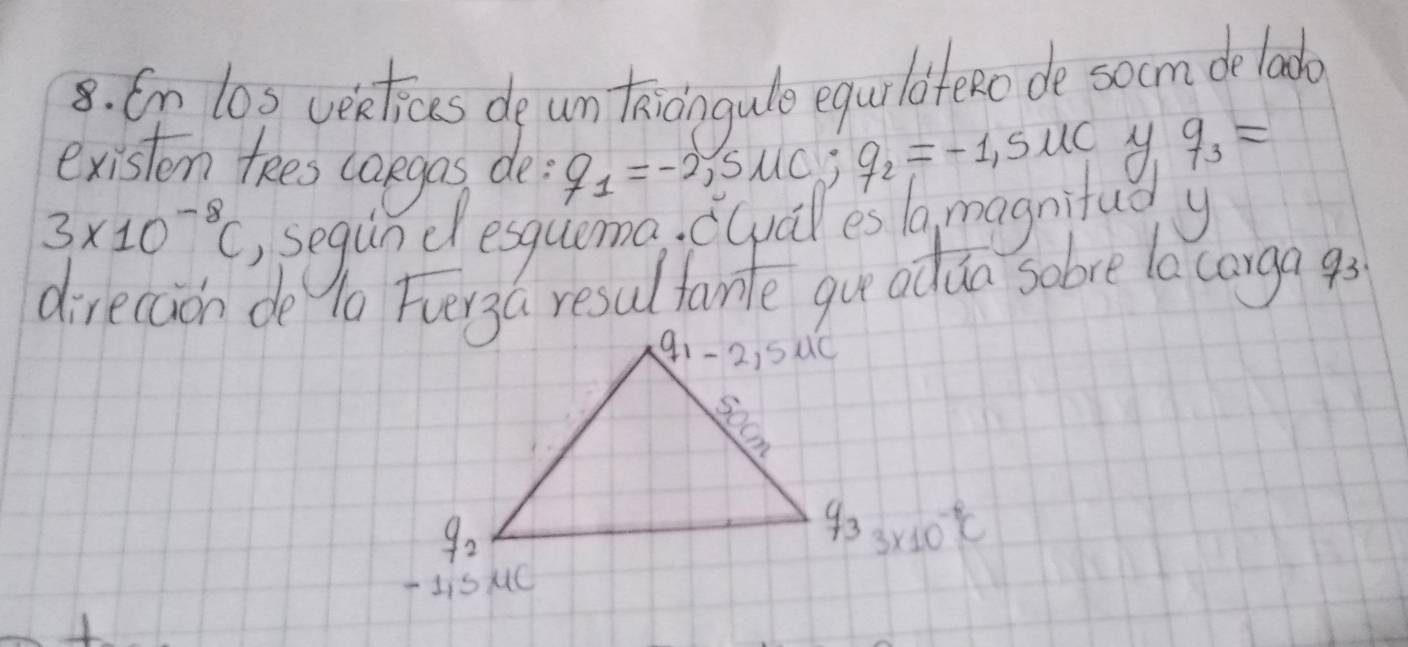 8. En los vértices de un triángulo equilátero de 50cm de lado
existen tres cargas de: q1 = -2,5 μC; q2 = -1,5 μC y q3 =
3x10⁻⁸C, según el esquema. ¿Cuál es la magnitud y
dirección de la Fuerza resultante que actúa sobre la carga q3.
q1 -2,5 μC
50cm
q2
-1,5 μC
q3 3x10⁻⁸C